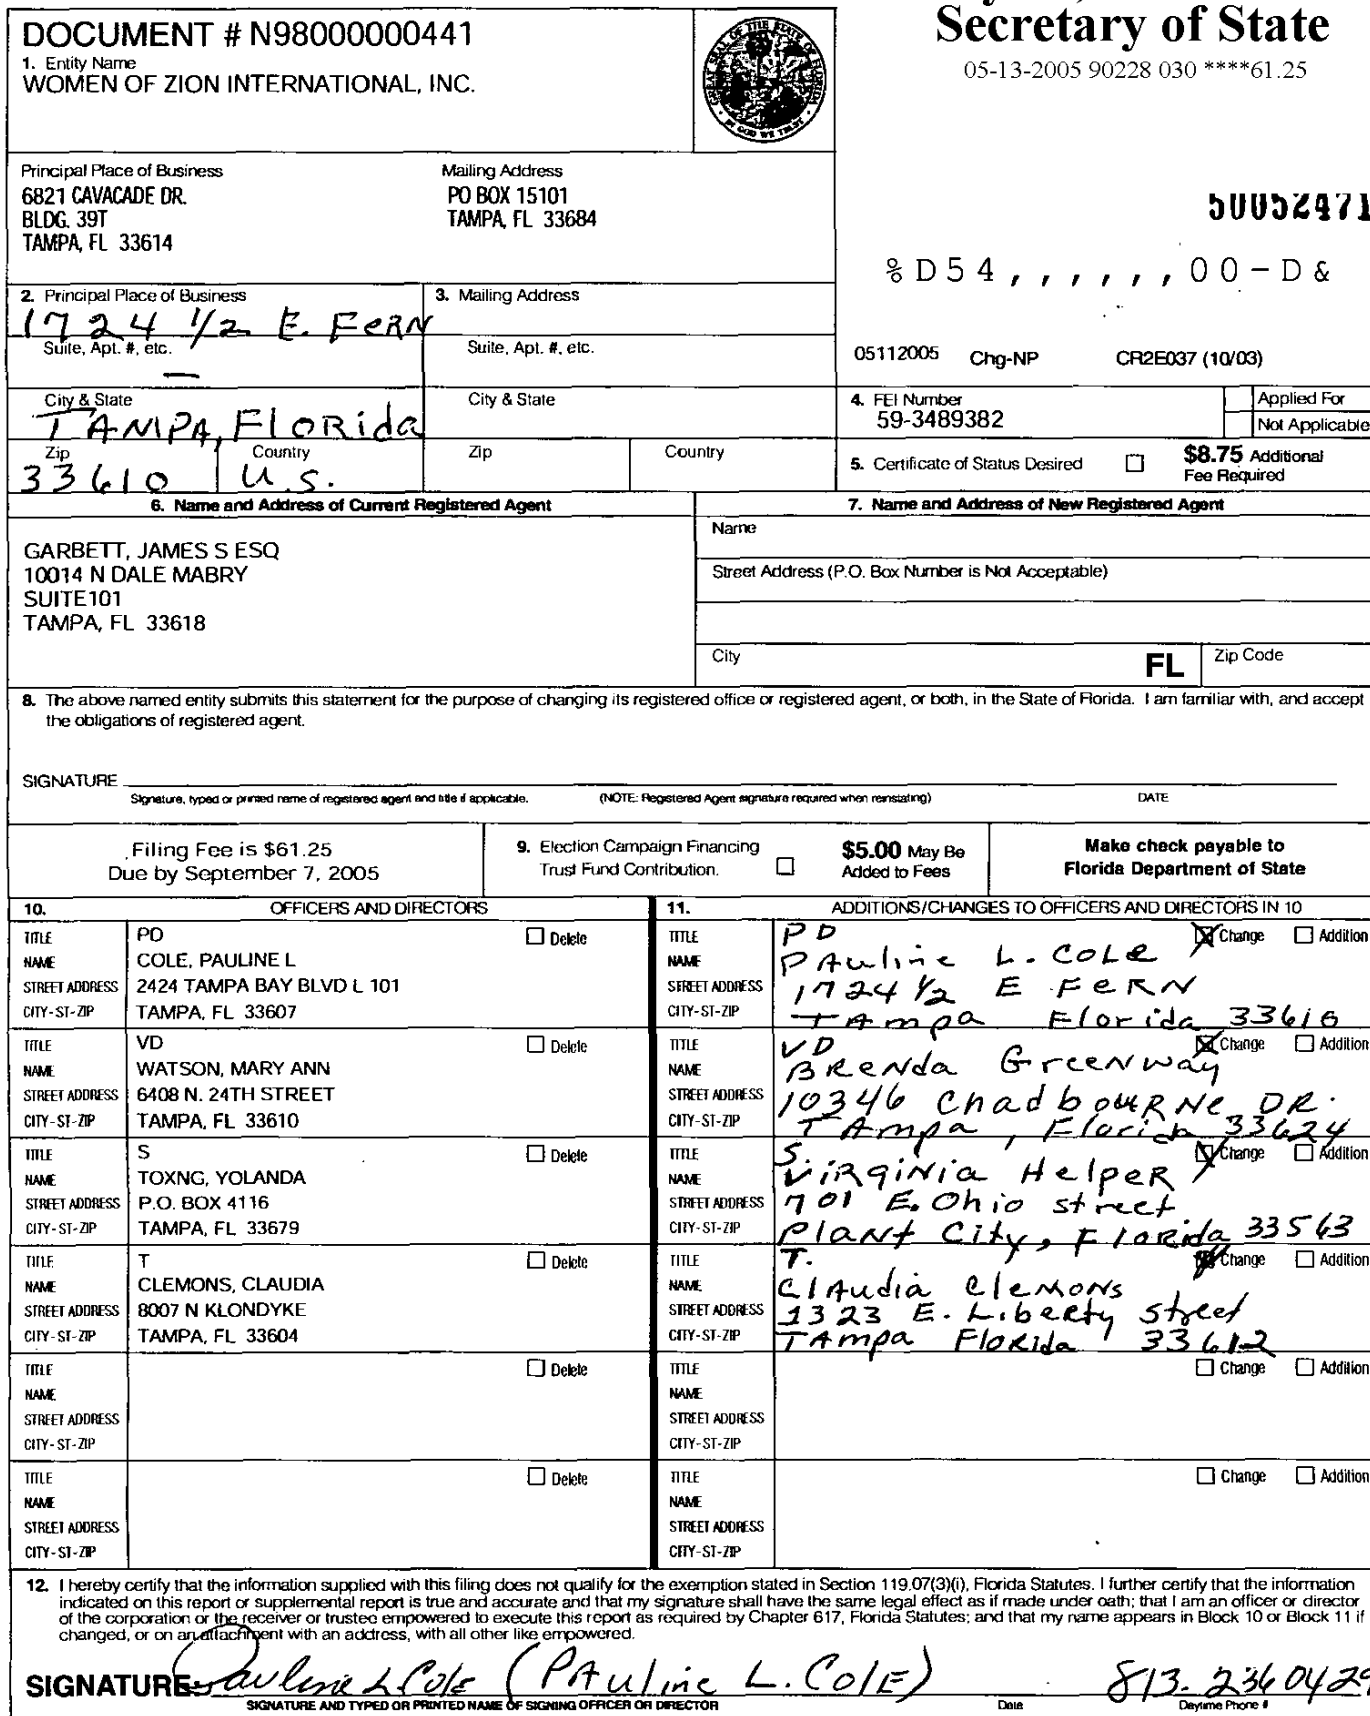 DOCUMENT # N98000000441
1. Entity Name
WOMEN OF ZION INTERNATIONAL, INC.
Secretary of State
05-13-2005 90228 030 ****61.25
Principal Place of Business
6821 CAVACADE DR.
BLDG. 39T
TAMPA, FL 33614
Mailing Address
PO BOX 15101
TAMPA, FL 33684
50052471
%D54,,,,,,00-D&
2. Principal Place of Business
1724 1/2 E. FeRN
Suite, Apt. #, etc.
—
City & State
TAMPA, Florida
Zip
33610
Country
U.S.
3. Mailing Address
Suite, Apt. #, etc.
City & State
Zip
Country
05112005 Chg-NP CR2E037 (10/03)
4. FEI Number
59-3489382
Applied For
Not Applicable
5. Certificate of Status Desired
$8.75 Additional
Fee Required
6. Name and Address of Current Registered Agent
GARBETT, JAMES S ESQ
10014 N DALE MABRY
SUITE101
TAMPA, FL 33618
7. Name and Address of New Registered Agent
Name
Street Address (P.O. Box Number is Not Acceptable)
City
FL
Zip Code
8. The above named entity submits this statement for the purpose of changing its registered office or registered agent, or both, in the State of Florida. I am familiar with, and accept
the obligations of registered agent.
SIGNATURE
Signature, typed or printed name of registered agent and title if applicable. (NOTE: Registered Agent signature required when reinstating) DATE
Filing Fee is $61.25
Due by September 7, 2005
9. Election Campaign Financing
Trust Fund Contribution.
$5.00 May Be
Added to Fees
Make check payable to
Florida Department of State
10. OFFICERS AND DIRECTORS
TITLE PD Delete
NAME COLE, PAULINE L
STREET ADDRESS 2424 TAMPA BAY BLVD L 101
CITY-ST-ZIP TAMPA, FL 33607
TITLE VD Delete
NAME WATSON, MARY ANN
STREET ADDRESS 6408 N. 24TH STREET
CITY-ST-ZIP TAMPA, FL 33610
TITLE S Delete
NAME TOXNG, YOLANDA
STREET ADDRESS P.O. BOX 4116
CITY-ST-ZIP TAMPA, FL 33679
TITLE T Delete
NAME CLEMONS, CLAUDIA
STREET ADDRESS 8007 N KLONDYKE
CITY-ST-ZIP TAMPA, FL 33604
TITLE Delete
NAME
STREET ADDRESS
CITY-ST-ZIP
TITLE Delete
NAME
STREET ADDRESS
CITY-ST-ZIP
11. ADDITIONS/CHANGES TO OFFICERS AND DIRECTORS IN 10
TITLE PD Change Addition
NAME PAuline L. COLe
STREET ADDRESS 1724 1/2 E FeRN
CITY-ST-ZIP TAmpa Florida 33610
TITLE VD Change Addition
NAME BRenda GreeNway
STREET ADDRESS 10346 ChadbouRNe DR.
CITY-ST-ZIP TAmpa, Florida 33624
TITLE S. Change Addition
NAME ViRgiNia HelpeR
STREET ADDRESS 701 E. Ohio street
CITY-ST-ZIP PlaNt City, FloRida 33563
TITLE T. Change Addition
NAME ClAudia CleMoNs
STREET ADDRESS 1323 E. Liberty street
CITY-ST-ZIP TAmpa FloRida 33612
TITLE Change Addition
NAME
STREET ADDRESS
CITY-ST-ZIP
TITLE Change Addition
NAME
STREET ADDRESS
CITY-ST-ZIP
12. I hereby certify that the information supplied with this filing does not qualify for the exemption stated in Section 119.07(3)(i), Florida Statutes. I further certify that the information
indicated on this report or supplemental report is true and accurate and that my signature shall have the same legal effect as if made under oath; that I am an officer or director
of the corporation or the receiver or trustee empowered to execute this report as required by Chapter 617, Florida Statutes; and that my name appears in Block 10 or Block 11 if
changed, or on an attachment with an address, with all other like empowered.
SIGNATURE: Pauline L Cole (PAuline L. ColE) 813-2360429
SIGNATURE AND TYPED OR PRINTED NAME OF SIGNING OFFICER OR DIRECTOR Date Daytime Phone #